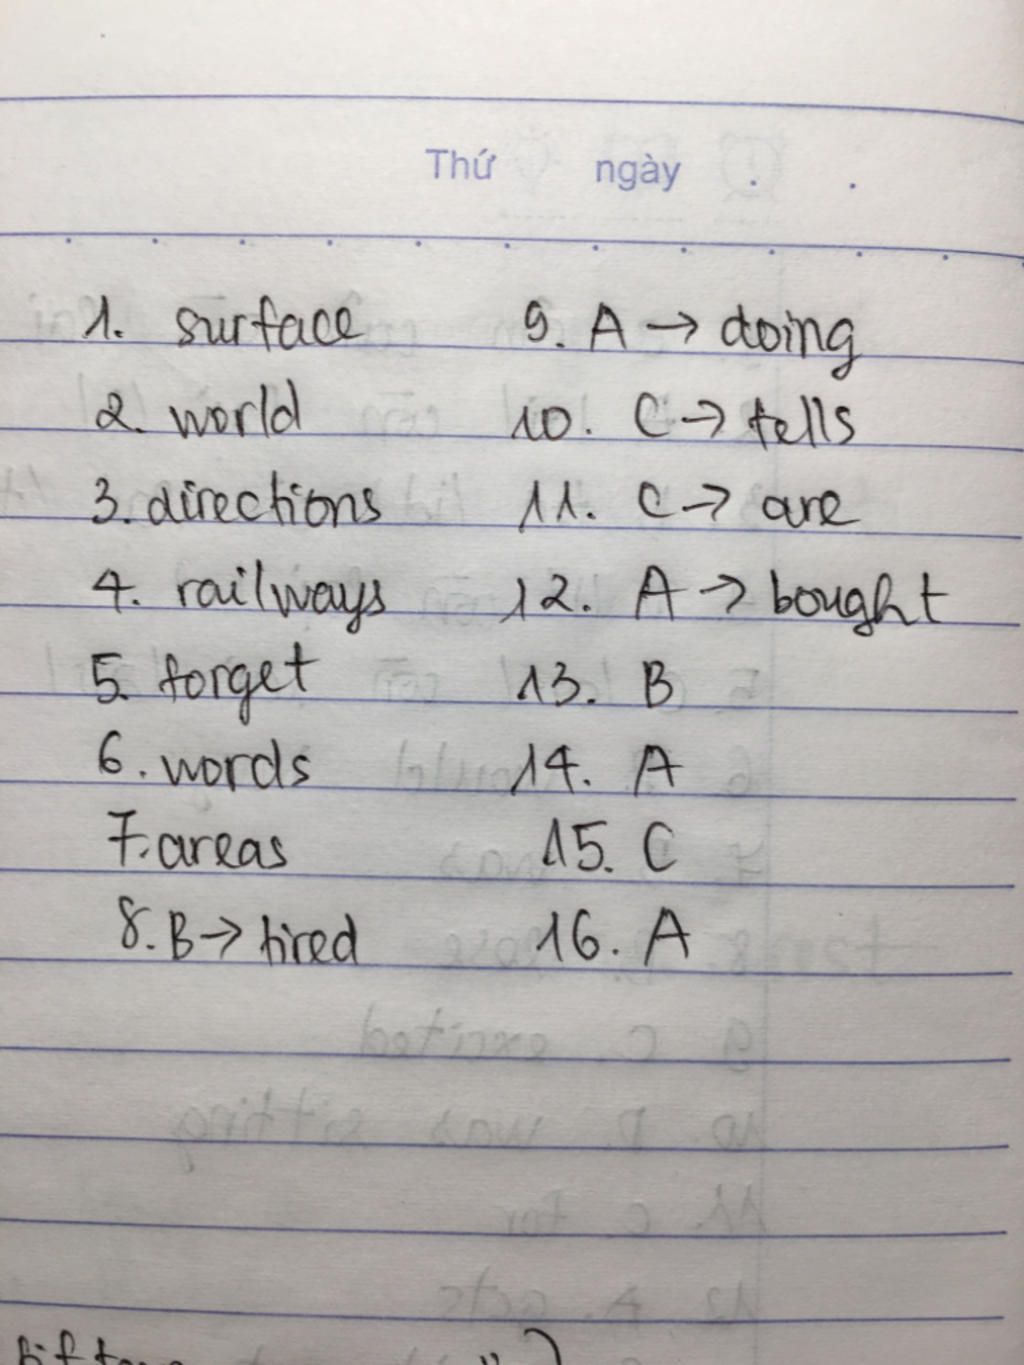 Thứ ngày . .
1. surface
2. world
3. directions
4. railways
5. forget
6. words
7. areas
8. B → tired
9. A → doing
10. C → tells
11. C → are
12. A → bought
13. B
14. A
15. C
16. A